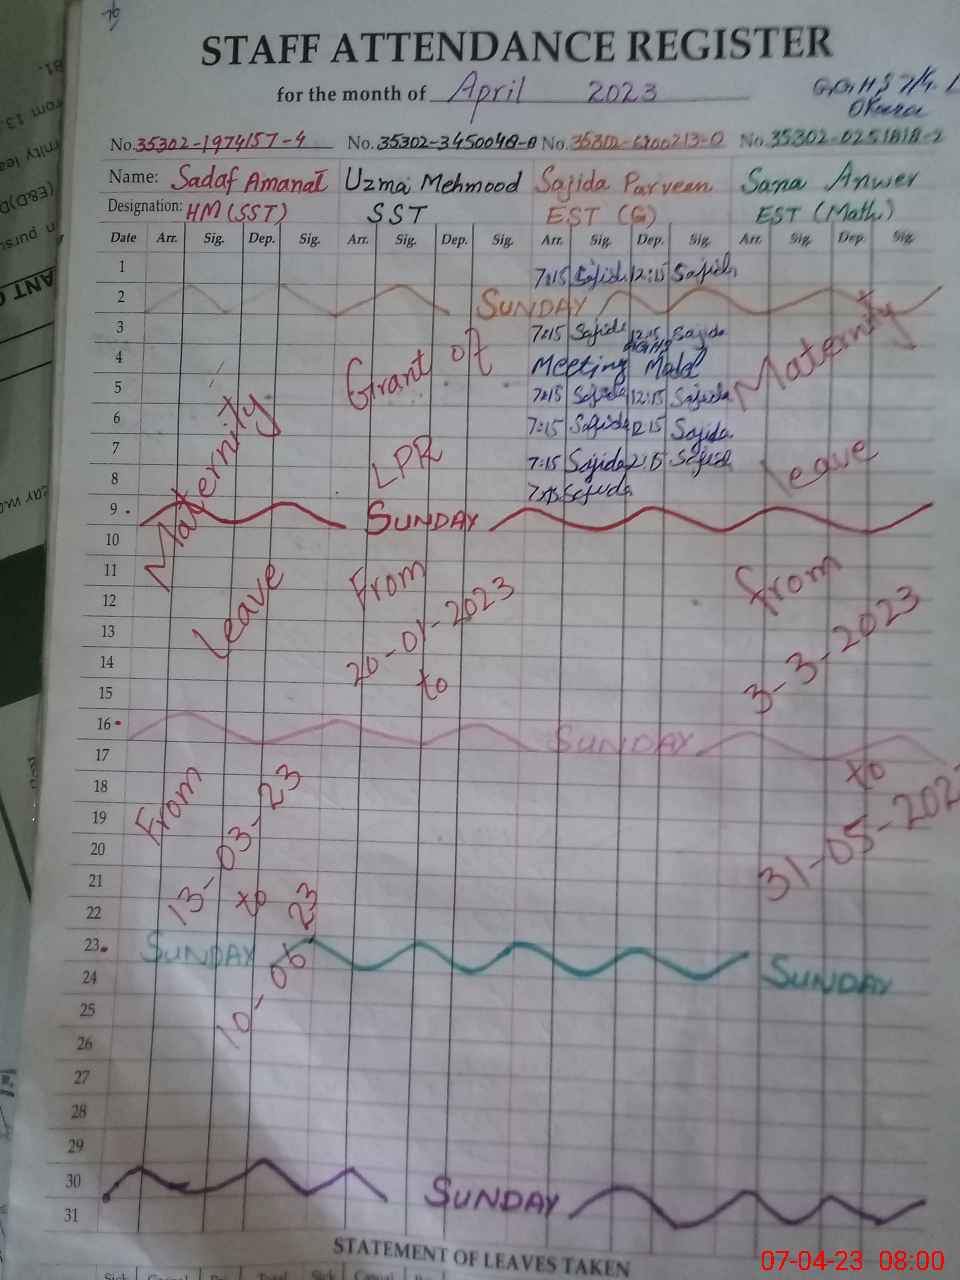 STAFF ATTENDANCE REGISTER
for the month of April 2023
No. 35302-1974157-4 No. 35302-3450048-0 No. 35302-6200213-0 No. 35302-0251818-2
Name: Sadaf Amanat Uzma Mehmood Sajida Parveen Sana Anwer
Designation: HM (SST) SST EST (G) EST (Math.)
Date Arr. Sig. Dep. Sig. Arr. Sig. Dep. Sig. Arr. Sig. Dep. Sig. Arr. Sig. Dep. Sig.
1 7:15 Sajida 12:15 Sajida
2 SUNDAY
3 7:15 Sajida 12:15 Sajida
4 Meeting
5 7:15 Sajida 12:15 Sajida
6 7:15 Sajida 12:15 Sajida
7 7:15 Sajida 12:15 Sajida
8 7:15 Sajida
9 SUNDAY
10
11
12
13
14
15
16 SUNDAY
17
18
19
20
21
22
23 SUNDAY SUNDAY
24
25
26
27
28
29
30 SUNDAY
31
Maternity
Leave
From
13-03-23
to
10-06-23
Grant of
LPR
From
20-01-2023
to
Maternity
leave
from
3-3-2023
to
31-05-202
STATEMENT OF LEAVES TAKEN
07-04-23 08:00